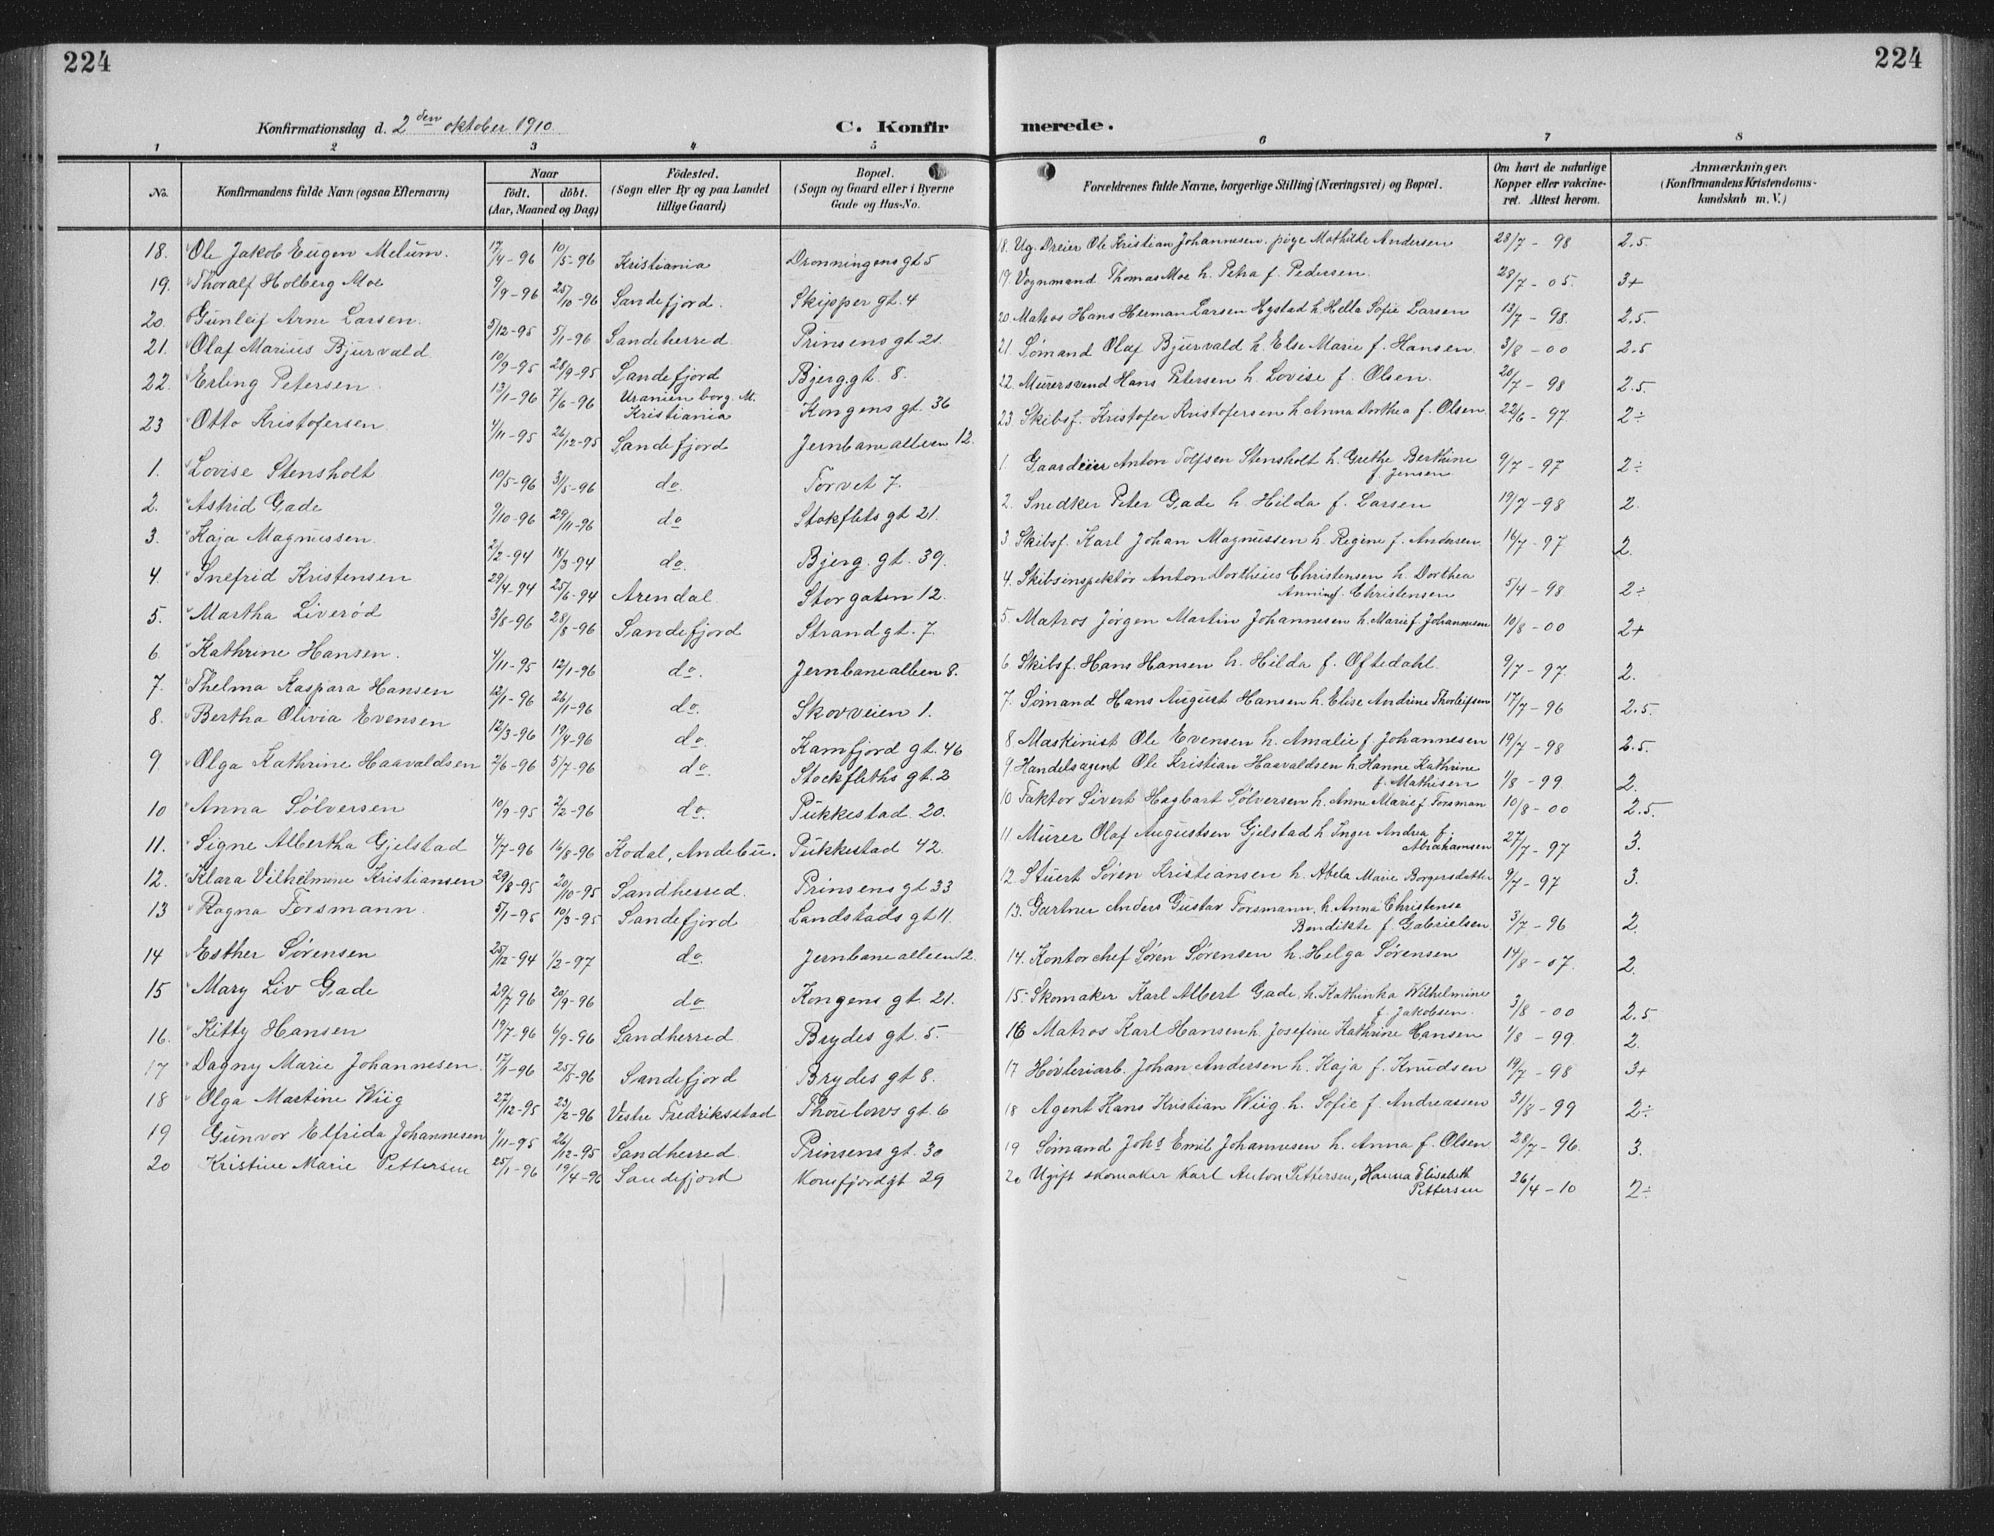 224
224
Konfirmationsdag d. 2den oktober 1910.
C. Konfirmerede.
1 2 3 4 5 6 7 8
No.
Konfirmandens fulde Navn (ogsaa Efternavn)
Naar
født. døbt.
(Aar, Maaned og Dag)
Fødested.
(Sogn eller By og paa Landet
tillige Gaard)
Bopæl.
(Sogn og Gaard eller i Byerne
Gade og Hus-No.
Forældrenes fulde Navne, borgerlige Stilling (Næringsvei) og Bopæl.
Om havt de naturlige
Kopper eller vakcine-
ret. Attest herom.
Anmærkninger.
(Konfirmandens Kristendoms-
kundskab m. V.)
18. Ole Jakob Eugen Melum. 17/4-96 10/5-96 Kristiania Dronningens gt 5 18. Ug. Dreier Ole Kristian Johannesen, pige Mathilde Andersen 28/7-98 2.5
19. Thoralf Holberg Moe 9/9-96 25/10-96 Sandefjord. Skipper gt. 4 19. Vognmand Thomas Moe h. Petra f. Pedersen. 28/7-05. 3+
20. Gunleif Arne Larsen. 5/12-95 5/1-96 Sandeherred. Prinsens gt 21. 20. Matros Hans Herman Larsen Hystad h. Hella Sofie Larsen 13/7-98. 2.5.
21. Olaf Marius Bjurvald 10/9-95 28/9-95 Sandefjord Bjerg.gt. 8. 21. Sømand Olaf Bjurvald h. Else Marie f. Hansen. 3/8-00 2.5
22. Erling Petersen. 13/1-96 7/6-96 Uranienborg. M. Kristiania Kongens gt. 36 22. Murersvend Hans Petersen h. Lovise f. Olsen. 20/7-98 2.5.
23 Otto Kristofersen 4/11-95 26/12-95 Sandefjord Jernbanealleen 12. 23. Skibsf. Kristofer Kristofersen h Anna Dorthea f. Olsen 22/6-97 2÷
1. Lovise Stensholt 10/5-96 31/5-96 do. Torvet 7. 1. Gaardeier Anton Tolfsen Stensholt h. Grethe Berthine
f. Jensen 9/7-97 2÷
2. Astrid Gade 9/10-96 29/11-96 do Stokflets gt 21. 2. Snedker Peter Gade h. Hilda f. Larsen 19/7-98 2.
3. Kaja Magnussen. 2/2-94 18/3-94 do. Bjerg. gt. 39. 3 Skibsf. Karl Johan Magnussen h. Regine f. Andersen 16/7-97 2.
4. Snefrid Kristensen 29/4-94 25/6-94 Arendal. Storgaten 12. 4. Skibsinspektør Anton Dortheius Christensen h. Dorthea
Annine f. Christensen 5/4-98 2÷
5. Martha Liverød 3/8-96 28/8-96 Sandefjord Strandgt. 7. 5. Matros Jørgen Martin Johannesen h. Marie f. Johannesen 10/8-00 2+
6. Kathrine Hansen. 4/11-95 12/1-96 do. Jernbanealleen 8. 6 Skibsf. Hans Hansen h. Hilda f. Oftedahl. 9/7-97. 2.
7. Thelma Kaspara Hansen 12/1-96 26/1-96 do. Skovveien 1. 7. Sømand Hans August Hansen h. Elise Andrine Thorleifsen 17/7-96 2.5.
8. Bertha Olivia Evensen 12/3-96 19/4-96 do. Kamfjord gt. 46 8. Maskinist Ole Evensen h. Amalie f. Johannesen 19/7-98 2.5.
9 Olga Kathrine Haavaldsen 2/6-96 5/7-96 do. Stockfleths gt. 2 9. Handelsagent Ole Kristian Haavaldsen h. Hanne Kathrine
f. Mathisen 1/8-99 2.
10 Anna Sølversen 10/9-95 2/2-96 do. Pukkestad 20. 10 Faktor Sivert Hagbart Sølversen h. Anne Marie f. Forsman 10/8-00 2.5.
11. Signe Albertha Gjelstad 4/7-96 16/8-96 Kodal, Andebu. Pukkestad 42. 11. Murer Olaf Augustsen Gjelstad h Inger Andrea f.
Abrahamsen 27/7-97 3.
12. Klara Vilhelmine Kristiansen 29/8-95 20/10-95 Sandherred. Prinsens gt 33 12. Stuert Søren Kristiansen h. Abela Marie Borgersdatter 9/7-97 3.
13 Ragna Forsmann. 5/1-95 10/3-95 Sandefjord Landstads gt 11. 13. Gartner Anders Gustav Forsmann h. Anna Christense
Bendikte f. Gabrielsen 3/7-96 2.
14 Esther Sørensen 25/12-94 1/2-97 do. Jernbanealleen 12. 14. Kontorchef Søren Sørensen h. Helga Sørensen 14/8-07. 2.
15 Mary Liv Gade 29/7-96 20/9-96 do Kongens gt. 21. 15. Skomaker Karl Albert Gade, h. Kathinka Wilhelmine
f. Jakobsen. 3/8-00 2.5
16. Kitty Hansen 19/7-96 6/9-96 Sandherred Brydes gt. 5. 16 Matros Karl Hansen h. Josefine Kathrine Hansen 1/8-99. 2.
17 Dagny Marie Johannesen. 17/1-96 25/5-96 Sandefjord Brydes gt 8. 17 Høvleriarb. Johan Andersen h. Kaja f. Knudsen 19/7-98 3+
18 Olga Martine Wiig 27/12-95 23/2-96 Vestre Fredriksstad Thoulows gt. 6 18 Agent Hans Kristian Wiig h. Sofie f. Andreassen 31/8-99 2÷
19 Gunvor Elfrida Johannesen 1/11-95 26/12-95 Sandherred. Prinsens gt. 30 19 Sømand Johs Emil Johannesen h. Anna f. Olsen 28/7-96. 3.
20 Kristine Marie Pettersen 25/1-96 19/4-96 Sandefjord Kamfjordgt 29 20 Ugift skomaker Karl Anton Pettersen, Hanna Elisabeth
Pettersen 26/4-10 2÷